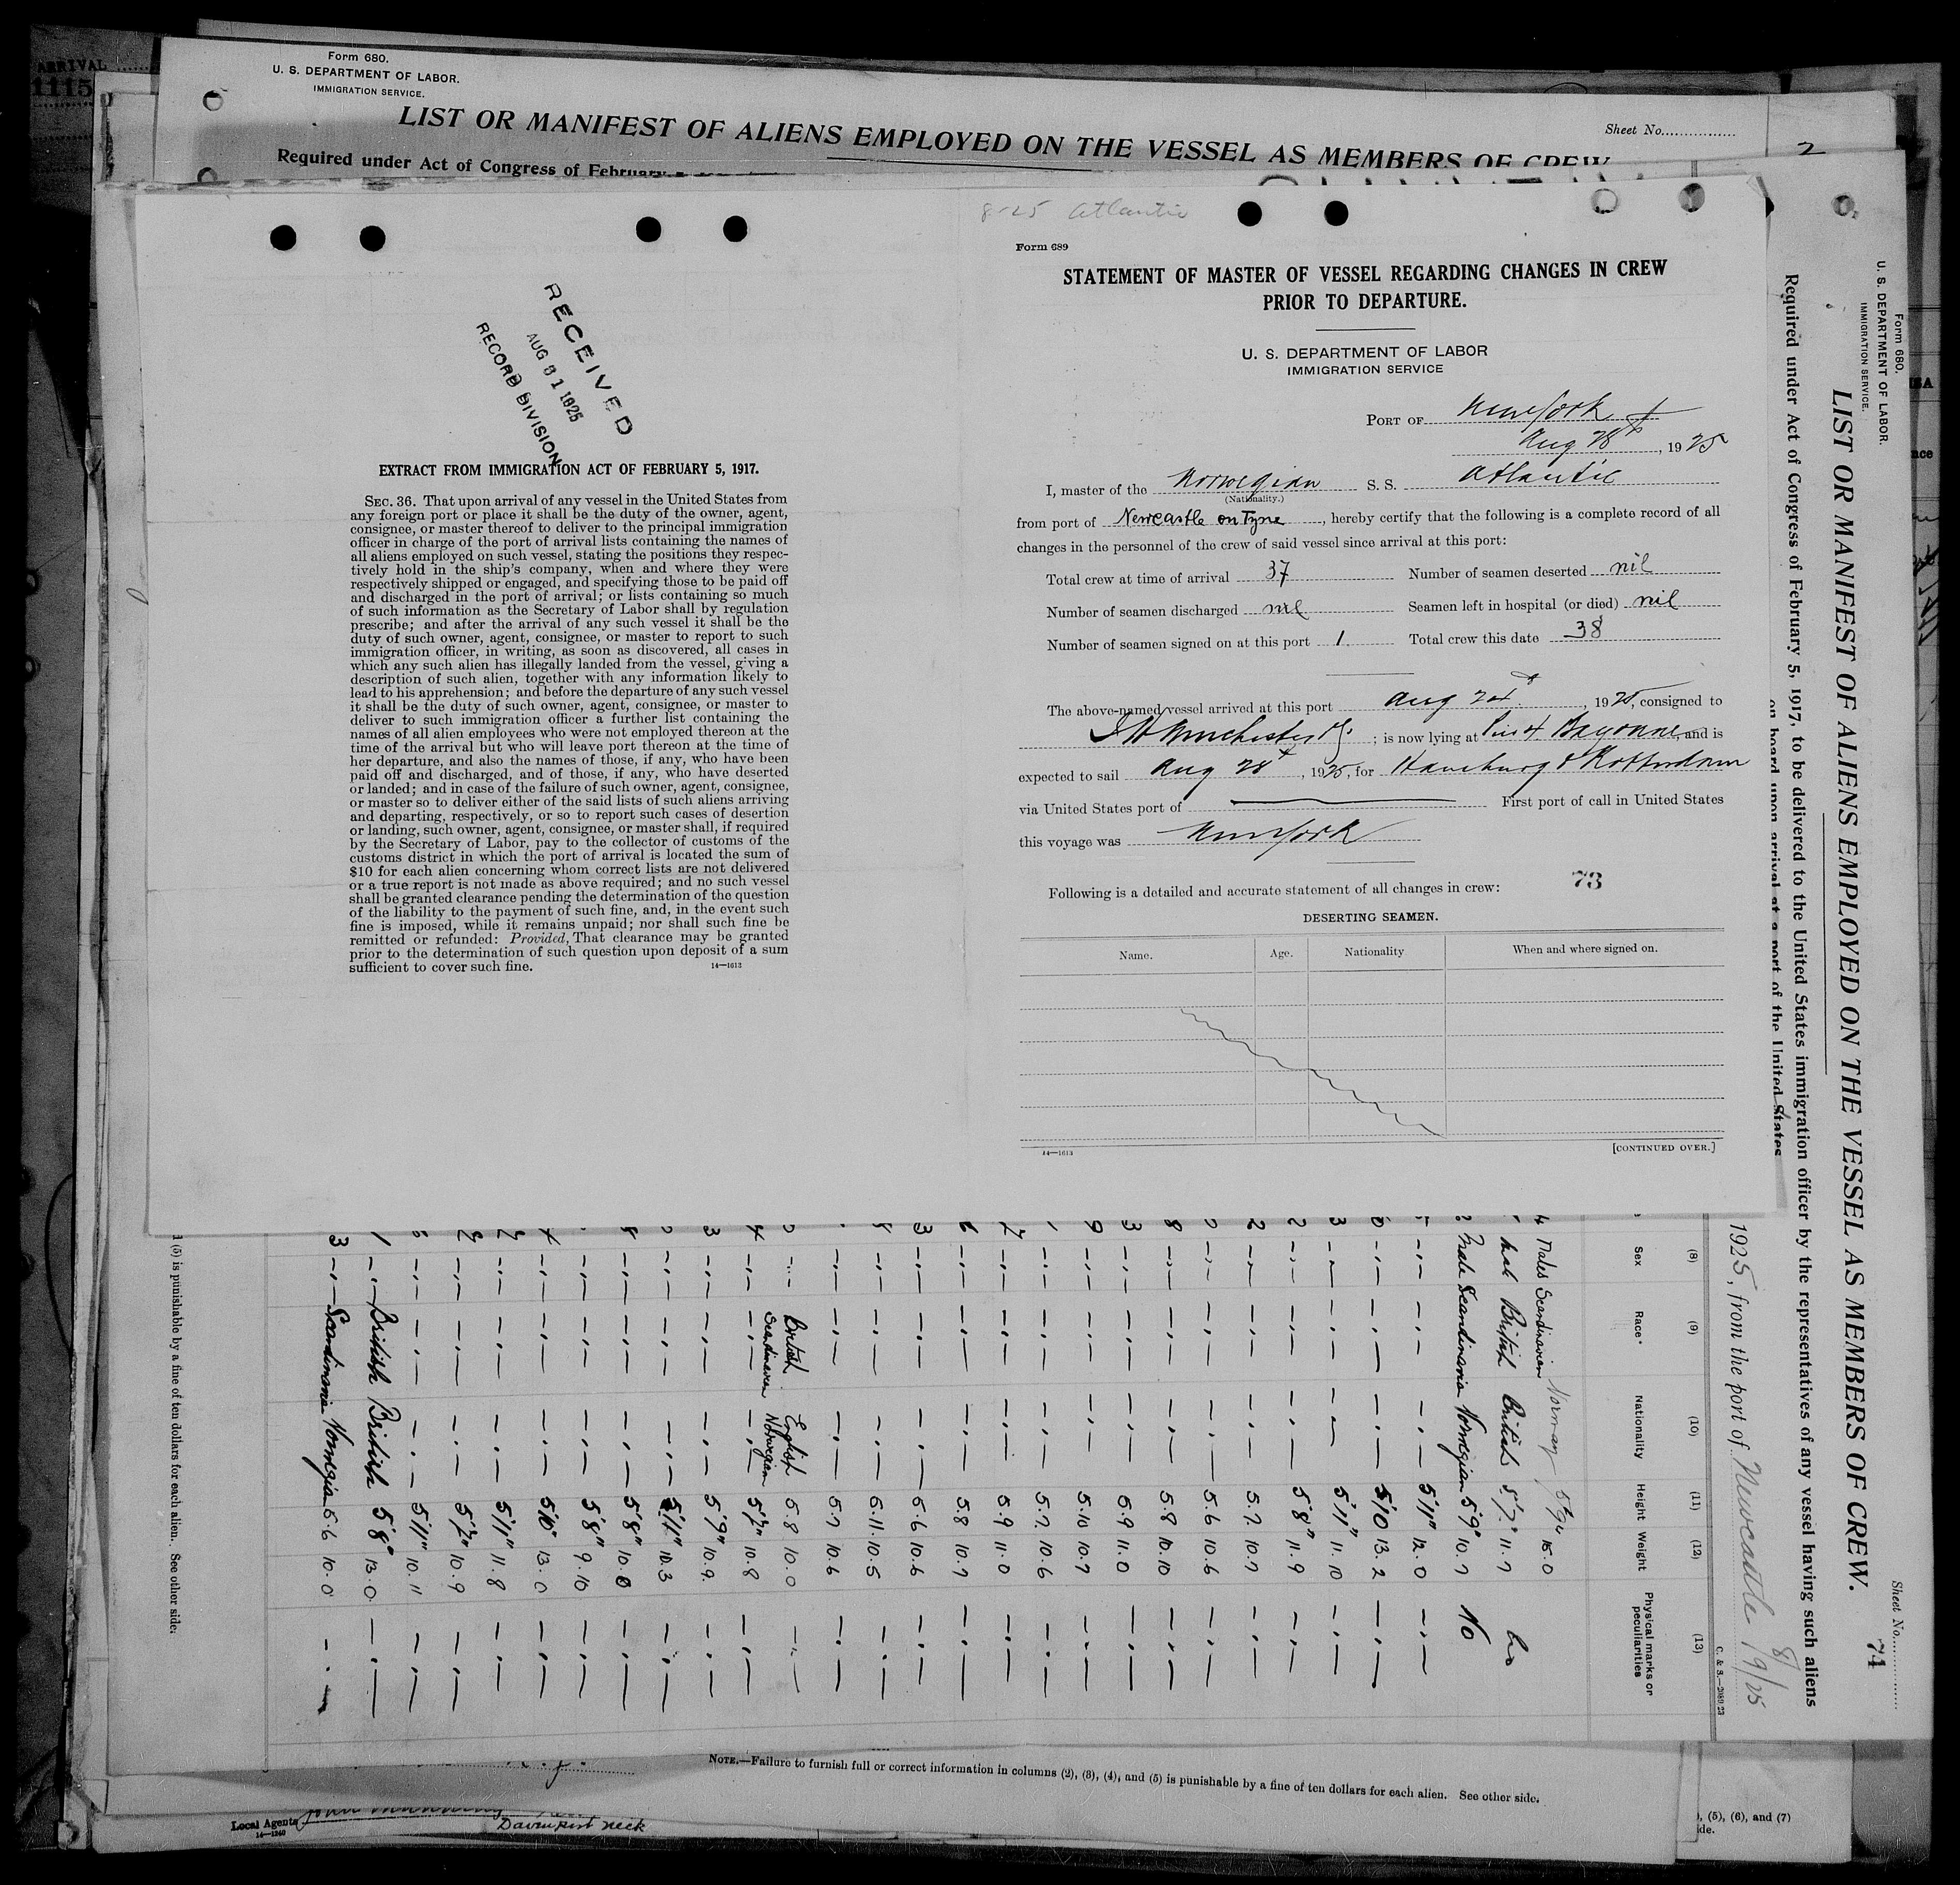 ARRIVAL
1115
Form 680.
U. S. DEPARTMENT OF LABOR.
IMMIGRATION SERVICE.
LIST OR MANIFEST OF ALIENS EMPLOYED ON THE VESSEL AS MEMBERS OF CREW
Sheet No.
2
Required under Act of Congress of February
RECEIVED
AUG 31 1925
RECORD DIVISION
EXTRACT FROM IMMIGRATION ACT OF FEBRUARY 5, 1917.
SEC. 36. That upon arrival of any vessel in the United States from
any foreign port or place it shall be the duty of the owner, agent,
consignee, or master thereof to deliver to the principal immigration
officer in charge of the port of arrival lists containing the names of
all aliens employed on such vessel, stating the positions they respec-
tively hold in the ship's company, when and where they were
respectively shipped or engaged, and specifying those to be paid off
and discharged in the port of arrival; or lists containing so much
of such information as the Secretary of Labor shall by regulation
prescribe; and after the arrival of any such vessel it shall be the
duty of such owner, agent, consignee, or master to report to such
immigration officer, in writing, as soon as discovered, all cases in
which any such alien has illegally landed from the vessel, giving a
description of such alien, together with any information likely to
lead to his apprehension; and before the departure of any such vessel
it shall be the duty of such owner, agent, consignee, or master to
deliver to such immigration officer a further list containing the
names of all alien employees who were not employed thereon at the
time of the arrival but who will leave port thereon at the time of
her departure, and also the names of those, if any, who have been
paid off and discharged, and of those, if any, who have deserted
or landed; and in case of the failure of such owner, agent, consignee,
or master so to deliver either of the said lists of such aliens arriving
and departing, respectively, or so to report such cases of desertion
or landing, such owner, agent, consignee, or master shall, if required
by the Secretary of Labor, pay to the collector of customs of the
customs district in which the port of arrival is located the sum of
$10 for each alien concerning whom correct lists are not delivered
or a true report is not made as above required; and no such vessel
shall be granted clearance pending the determination of the question
of the liability to the payment of such fine, and, in the event such
fine is imposed, while it remains unpaid; nor shall such fine be
remitted or refunded: Provided, That clearance may be granted
prior to the determination of such question upon deposit of a sum
sufficient to cover such fine. 14—1613
8-25 Atlantic
Form 689
STATEMENT OF MASTER OF VESSEL REGARDING CHANGES IN CREW
PRIOR TO DEPARTURE.
U. S. DEPARTMENT OF LABOR
IMMIGRATION SERVICE
PORT OF New York
Aug 28th, 1925
I, master of the Norwegian S. S. Atlantic
(Nationality.)
from port of Newcastle on Tyne, hereby certify that the following is a complete record of all
changes in the personnel of the crew of said vessel since arrival at this port:
Total crew at time of arrival 37 Number of seamen deserted nil
Number of seamen discharged nil Seamen left in hospital (or died) nil
Number of seamen signed on at this port 1. Total crew this date 38
The above-named vessel arrived at this port Aug, 1925, consigned to
Winchester; is now lying at Pier 4 Bayonne, and is
expected to sail Aug 28th, 1925, for Hamburg & Rotterdam
via United States port of — First port of call in United States
this voyage was New York
Following is a detailed and accurate statement of all changes in crew: 73
DESERTING SEAMEN.
Name. Age. Nationality When and where signed on.
14—1613 [CONTINUED OVER.]
Form 680.
U. S. DEPARTMENT OF LABOR.
IMMIGRATION SERVICE.
Sheet No. 74
LIST OR MANIFEST OF ALIENS EMPLOYED ON THE VESSEL AS MEMBERS OF CREW.
Required under Act of Congress of February 5, 1917, to be delivered to the United States immigration officer by the representatives of any vessel having such aliens
on board upon arrival at a port of the United States
1925, from the port of Newcastle 8/19/25
C. & S.—2089-23
(8) (9) (10) (11) (12) (13)
Sex Race* Nationality Height Weight Physical marks or peculiarities
Males Scandinavian Norway 5'9" 15.0
British British 5'7" 11.7 no
Male Scandinavia Norwegian 5'9" 10.7 No
5'11" 12.0
5'10 13.2
5'11" 11.10
5'8" 11.9
5.7. 10.7
5.6 10.6
5.8 10.10
5.9 11.0
5.10 10.7
5.7. 10.6
5.9 11.0
5.8 10.7
5.6 10.6
5.11. 10.5
5.7 10.6
British English 5.8 10.0
Scandinavian Norwegian 5'7" 10.8
5'9" 10.9
5'11" 10.3
5'8" 10.8
5'8" 9.10
5'10" 13.0
5'11" 11.8
5'7" 10.9
5'11" 10.11
1 British British 5'8" 13.0
3 Scandinavia Norwegian 5.6 10.0
(5) is punishable by a fine of ten dollars for each alien. See other side.
NOTE.—Failure to furnish full or correct information in columns (2), (3), (4), and (5) is punishable by a fine of ten dollars for each alien. See other side.
Local Agents
14—1240
Davenport Neck
, (5), (6), and (7)
ide.